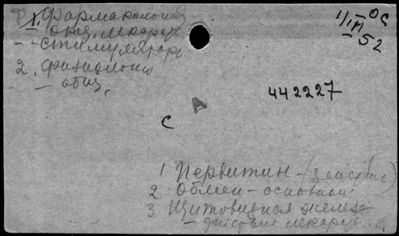 1. Фармакология
отд. лекарств
-- стимуляторы
2. физиология
- общ.
1/IX 52
ОС
442227
A
С
1 Первитин - (действие)
2. Обмен - основной
3. Щитовидная железа
- действие лекарств